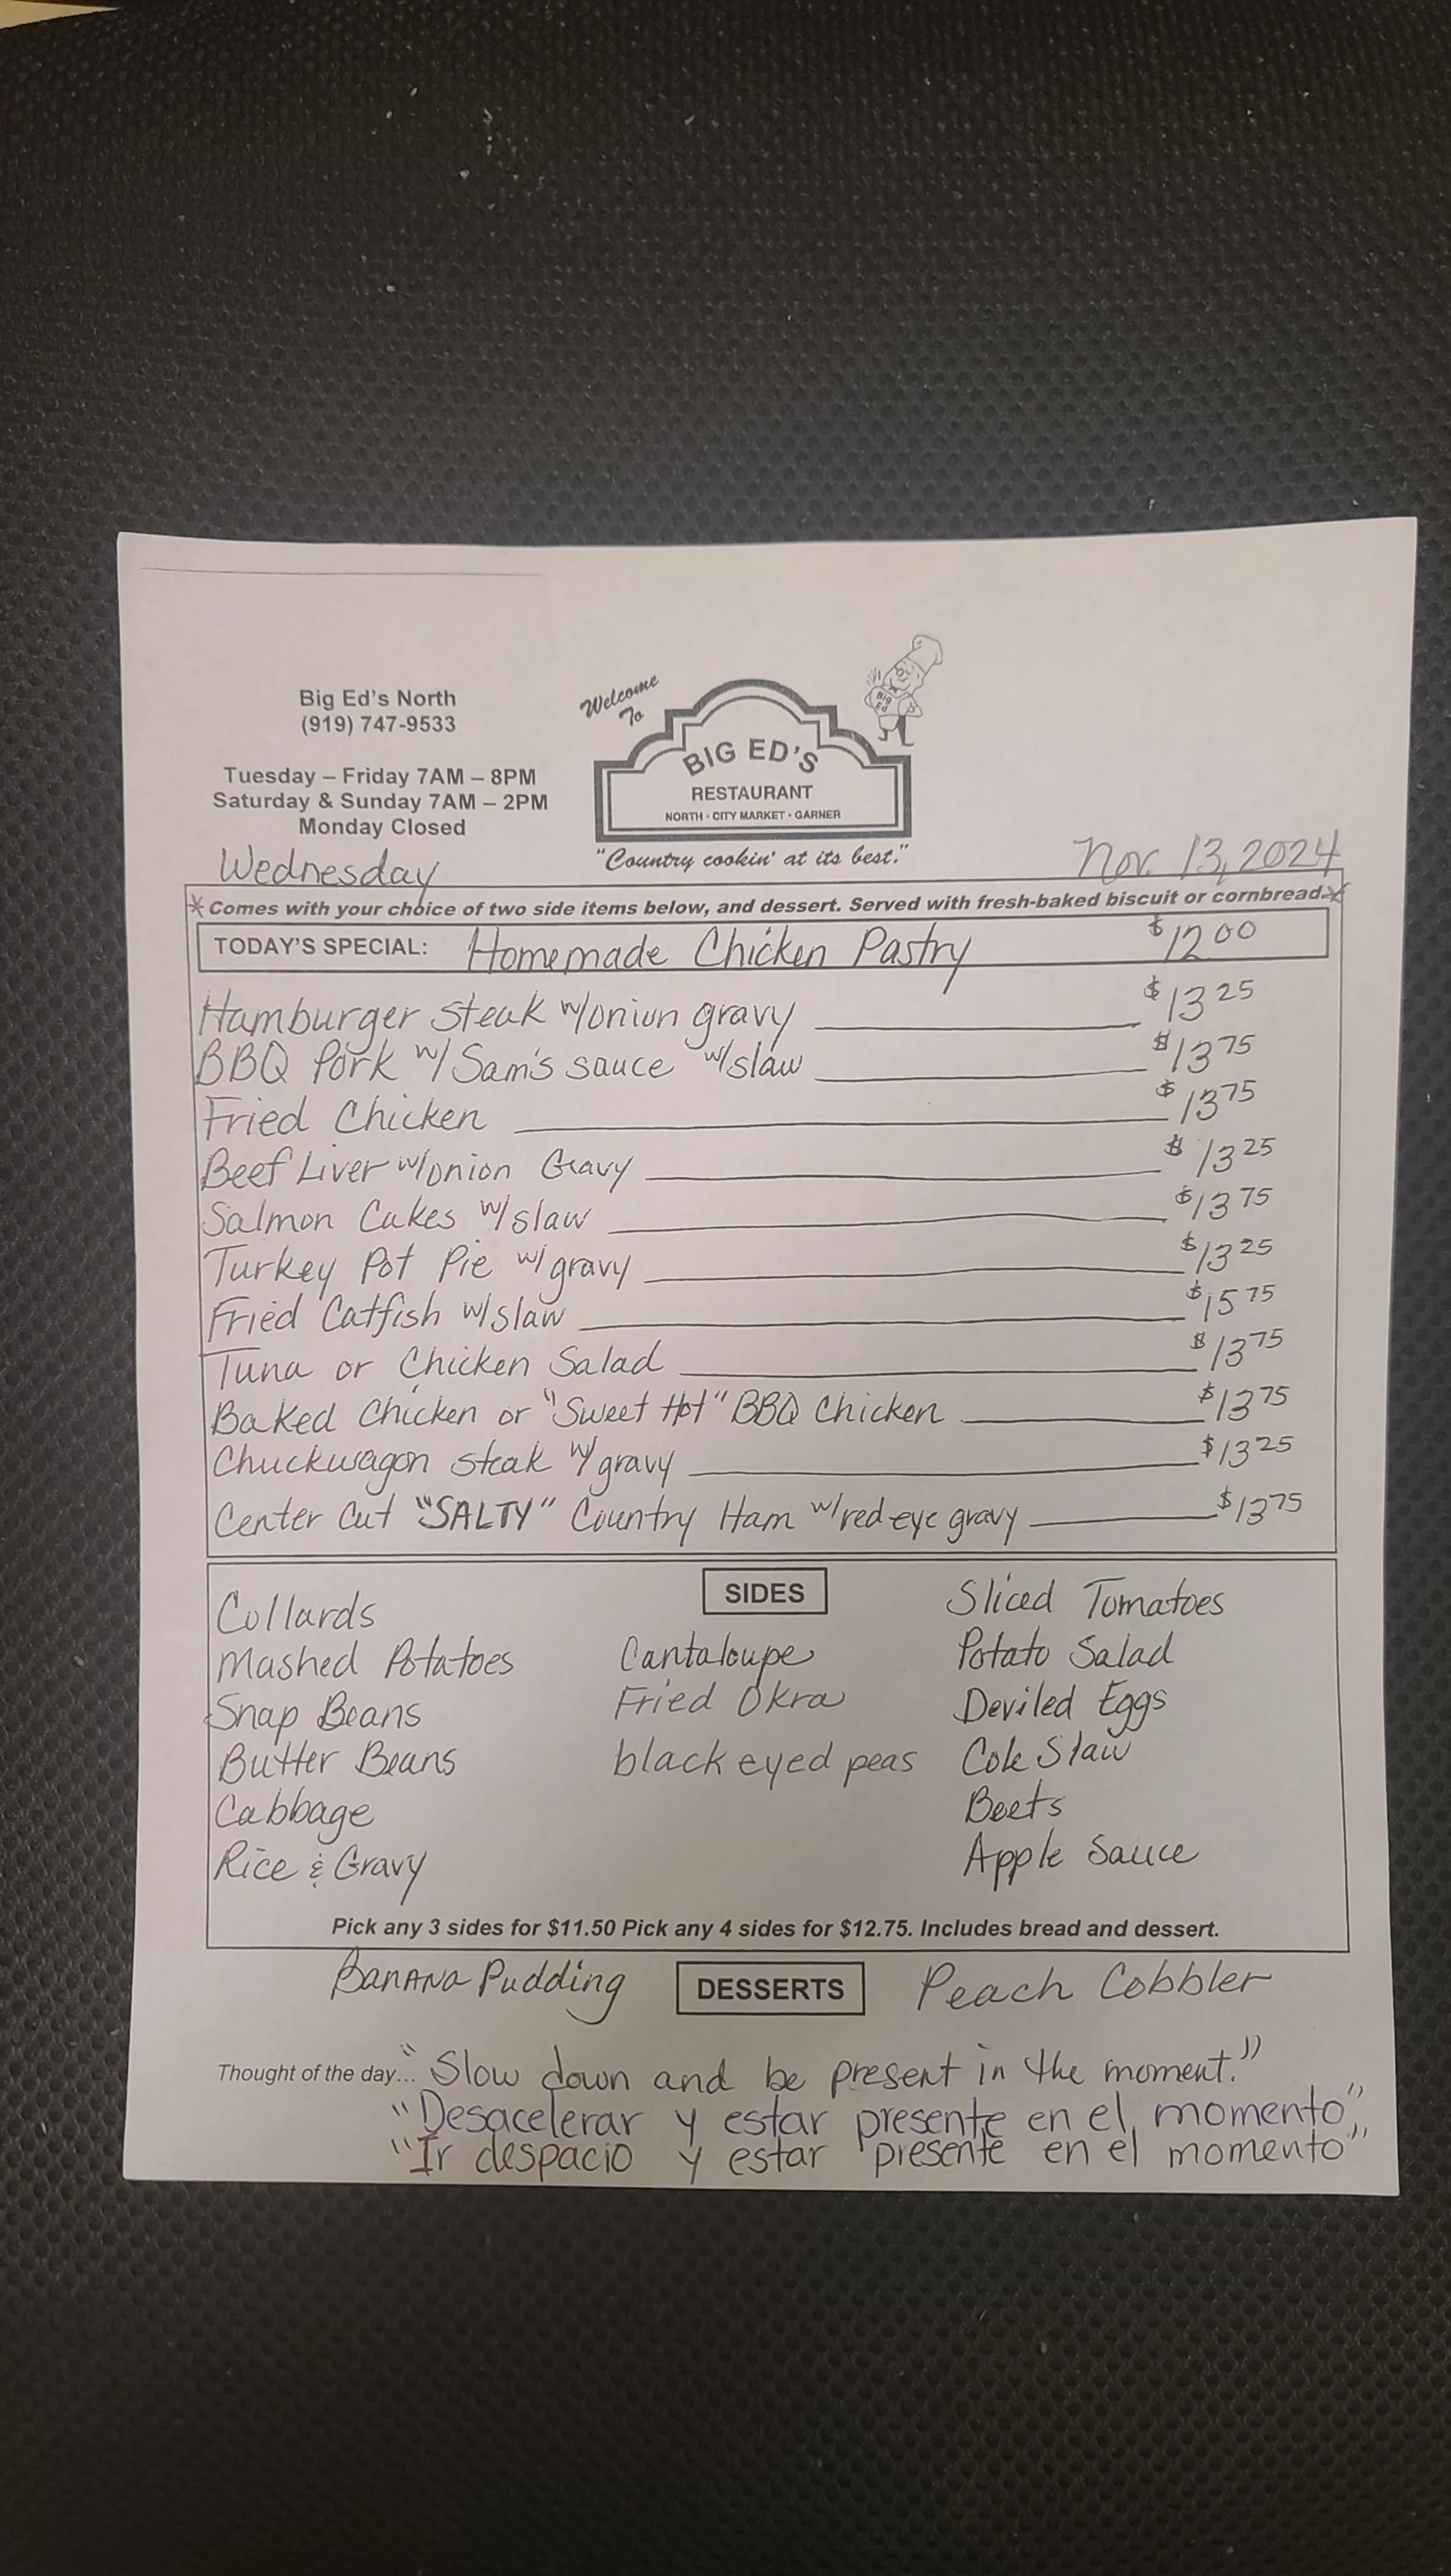 Big Ed's North
(919) 747-9533
Tuesday – Friday 7AM – 8PM
Saturday & Sunday 7AM – 2PM
Monday Closed
Welcome
To
Big Ed
BIG ED'S
RESTAURANT
NORTH · CITY MARKET · GARNER
"Country cookin' at its best."
Wednesday
Nov. 13, 2024
*Comes with your choice of two side items below, and dessert. Served with fresh-baked biscuit or cornbread*
TODAY'S SPECIAL: Homemade Chicken Pastry $12 00
Hamburger steak w/onion gravy $13 25
BBQ Pork w/ Sam's sauce w/slaw $13 75
Fried Chicken $13 75
Beef Liver w/onion Gravy $13 25
Salmon Cakes w/slaw $13 75
Turkey Pot Pie w/ gravy $13 25
Fried Catfish w/slaw $15 75
Tuna or Chicken Salad $13 75
Baked Chicken or "Sweet Hot" BBQ Chicken $13 75
Chuckwagon steak w/ gravy $13 25
Center Cut "SALTY" Country Ham w/red eye gravy $13 75
SIDES
Collards
Mashed Potatoes
Snap Beans
Butter Beans
Cabbage
Rice & Gravy
Cantaloupe
Fried Okra
black eyed peas
Sliced Tomatoes
Potato Salad
Deviled Eggs
Cole Slaw
Beets
Apple Sauce
Pick any 3 sides for $11.50 Pick any 4 sides for $12.75. Includes bread and dessert.
Banana Pudding DESSERTS Peach Cobbler
Thought of the day... "Slow down and be present in the moment."
"Desacelerar y estar presente en el momento",
"Ir despacio y estar presente en el momento"